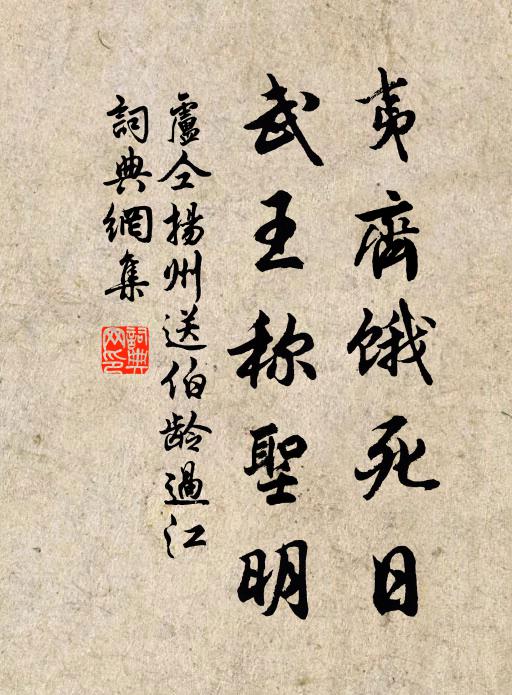 夷齊餓死日
武王称聖明
盧仝揚州送伯齡過江
詞典網集
詞典網印